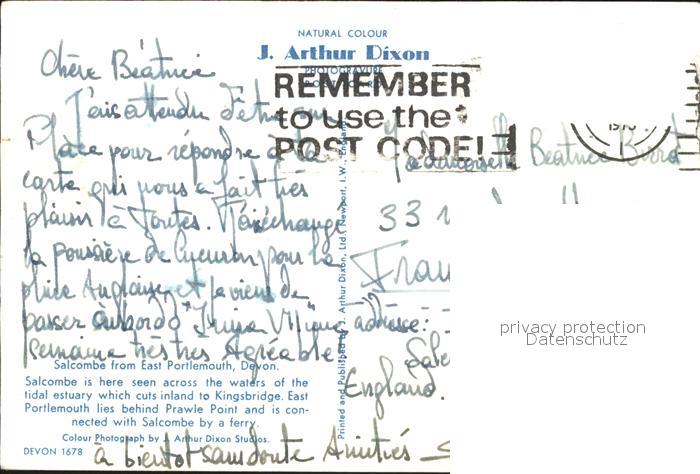 NATURAL COLOUR
J. Arthur Dixon
PHOTOGRAVURE
REMEMBER
to use the
POST CODE!
Chère Béatrice
J'ais attendu d'être sur
Place pour répondre à la
carte qui nous a fait très
plaisir à Toutes.
la poussière de pour la
pluie Anglaise et je viens de
passer à bord d' une
semaine très très Agréable
Mademoiselle Béatrice
33
adresse:
England.
Salcombe from East Portlemouth, Devon.
Salcombe is here seen across the waters of the
tidal estuary which cuts inland to Kingsbridge. East
Portlemouth lies behind Prawle Point and is con-
nected with Salcombe by a ferry.
Colour Photograph by J. Arthur Dixon Studios.
DEVON 1678
à bientot sans doute Amitiés
Printed and Published by J. Arthur Dixon, Ltd., Newport, I.W., England
privacy protection
Datenschutz